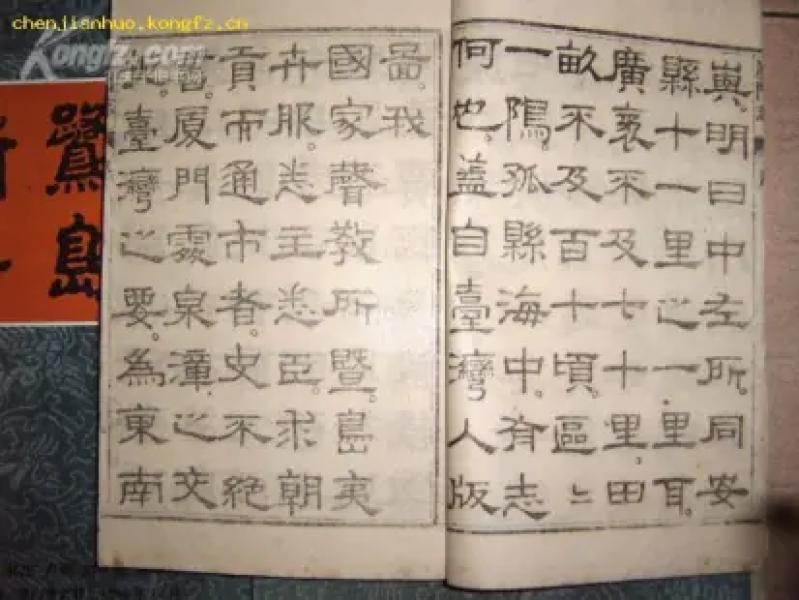 chenjianhuo.kongfz.cn
Kongfz.com
鷺島
嶼明曰中左所同安
縣十一里之一里耳
廣袤不及七十里田
畝不及百十頃區〻
一隅孤縣海中有志
何也蓋自臺灣人版
啚我
國家聲敎所曁島夷
卉服悉主悉臣求朝
貢而通市者史不絕
書厦門處泉漳之交
臺灣之要為東南